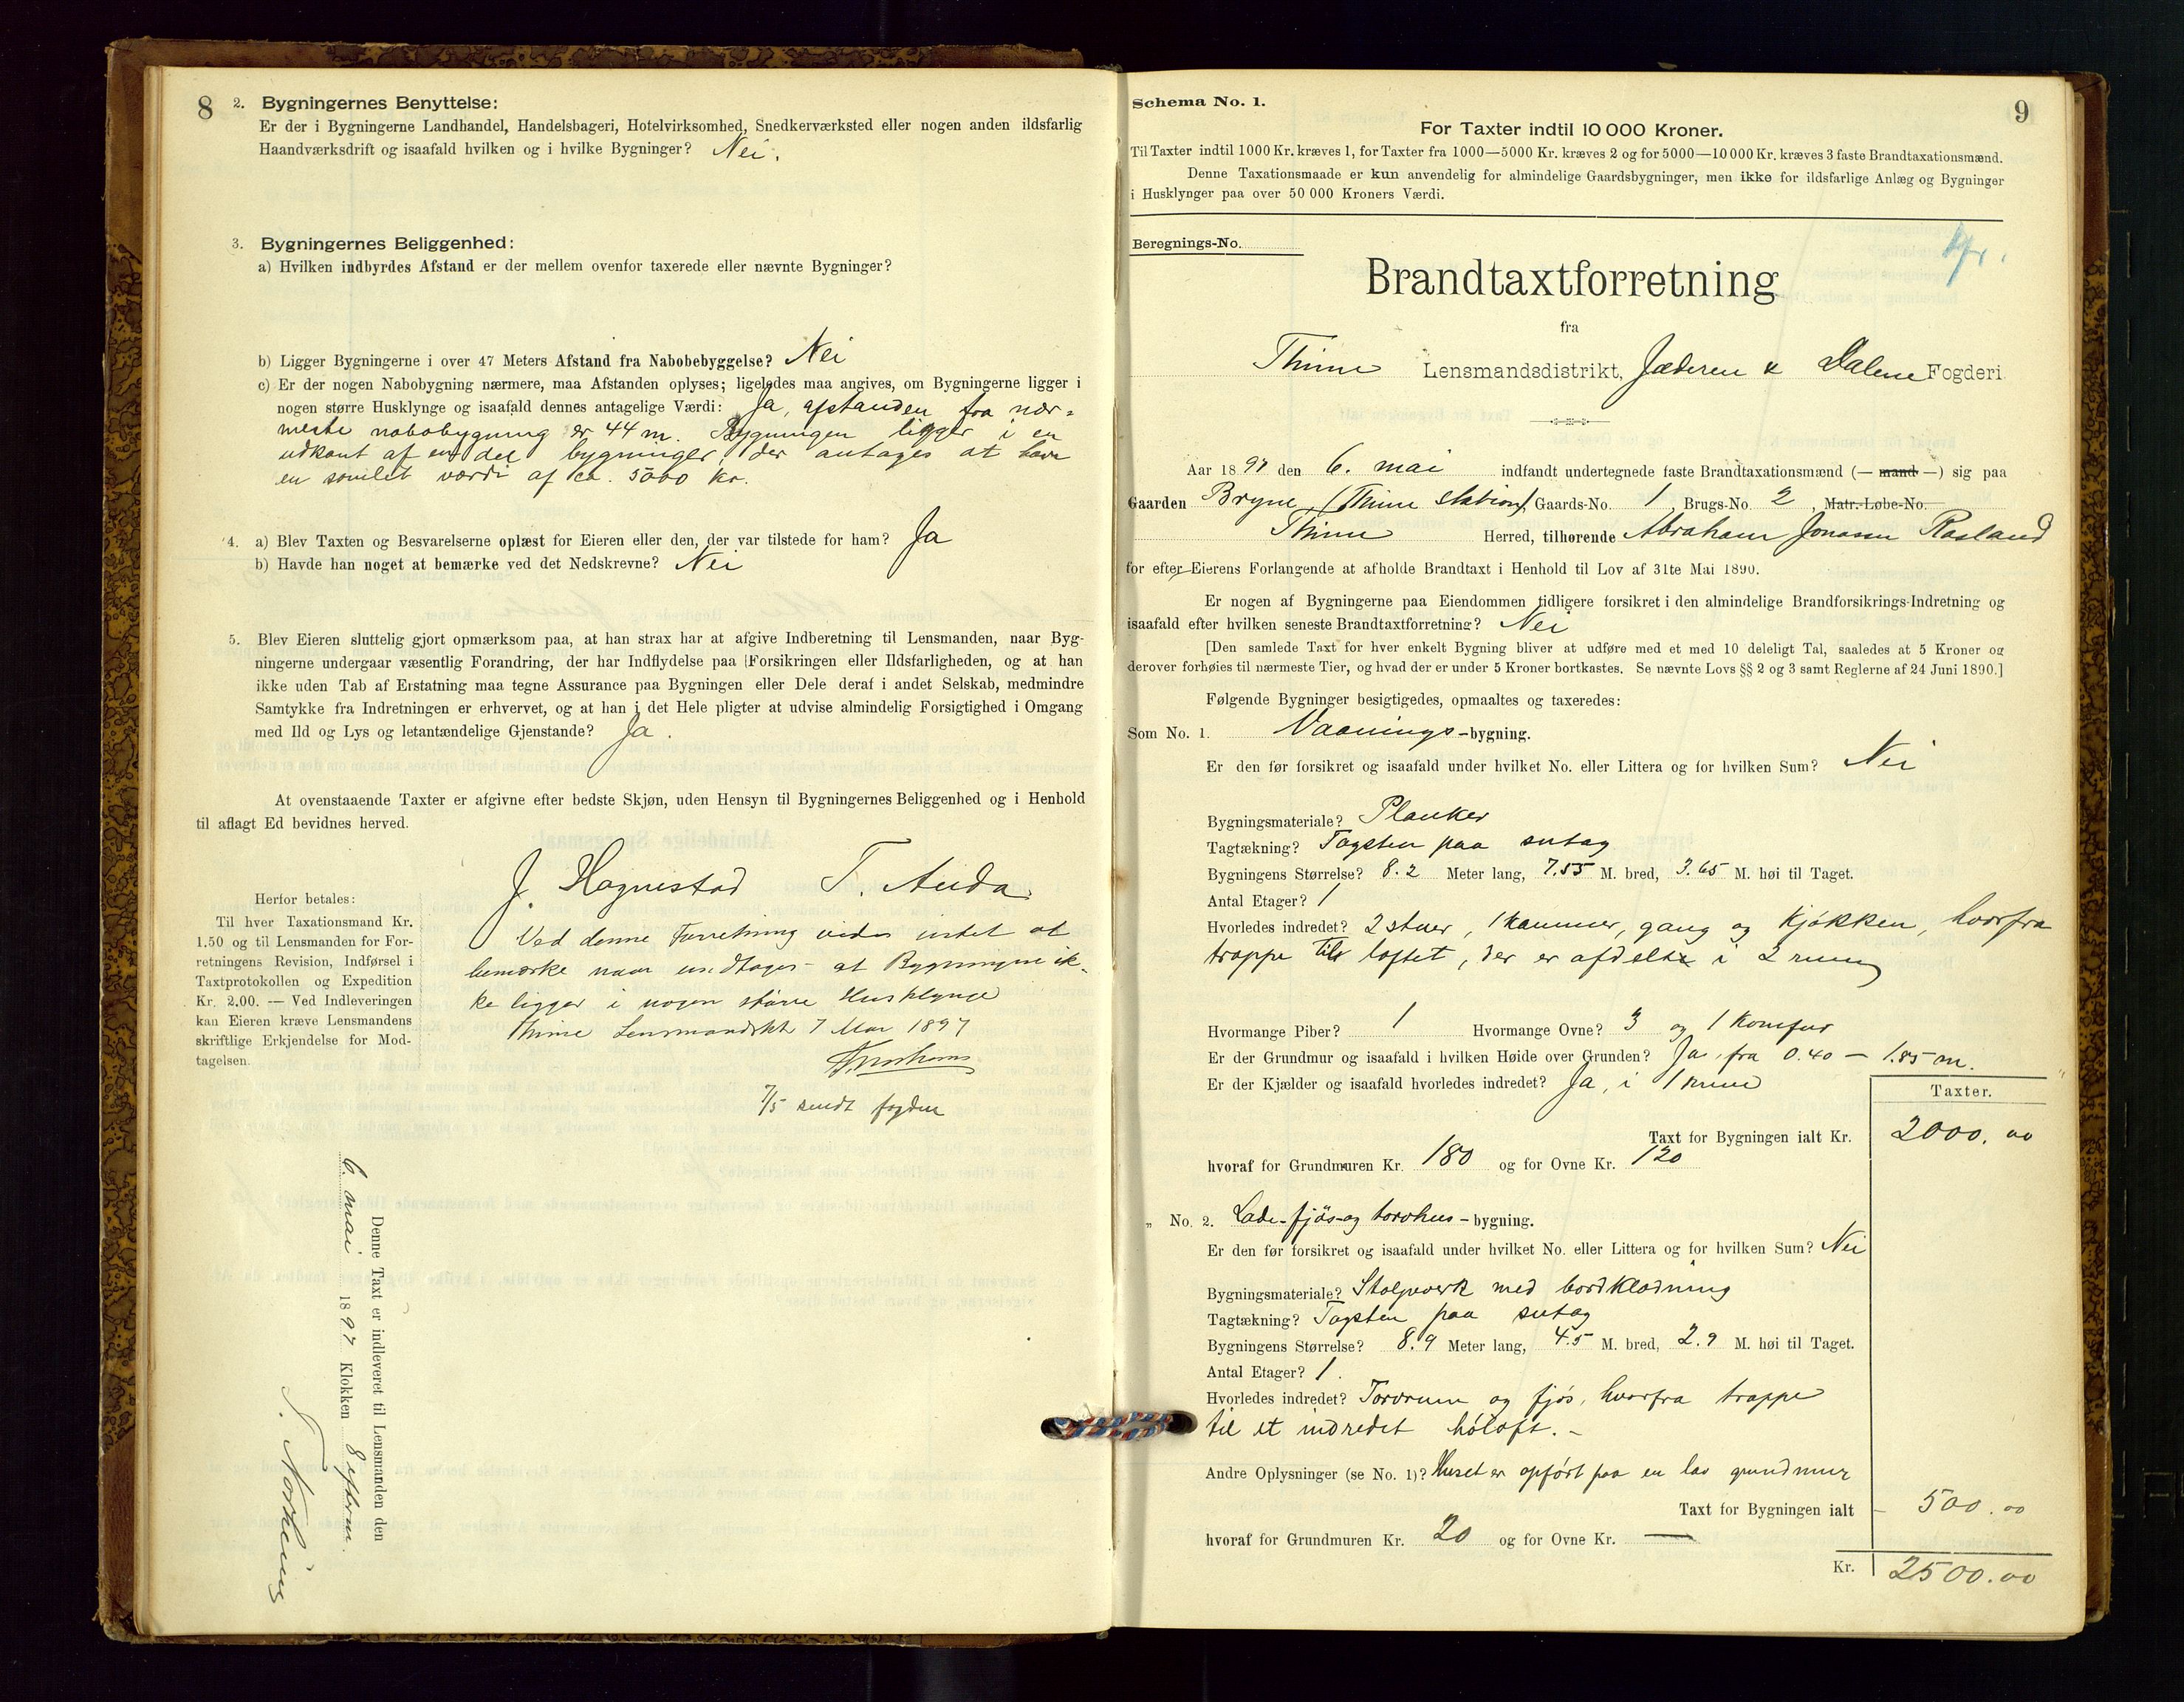 8
2. Bygningernes Benyttelse:
Er der i Bygningerne Landhandel, Handelsbageri, Hotelvirksomhed, Snedkerværksted eller nogen anden ildsfarlig
Haandværksdrift og isaafald hvilken og i hvilke Bygninger? Nei.
3. Bygningernes Beliggenhed:
a) Hvilken indbyrdes Afstand er der mellem ovenfor taxerede eller nævnte Bygninger?
b) Ligger Bygningerne i over 47 Meters Afstand fra Nabobebyggelse? Nei
c) Er der nogen Nabobygning nærmere, maa Afstanden oplyses; ligeledes maa angives, om Bygningerne ligger i
nogen større Husklynge og isaafald dennes antagelige Værdi: Ja, afstanden fra nær-
meste nabobygning er 44 m. Bygningen ligger i en
udkant af en del bygninger, der antages at have
en samlet værdi af ca. 5000 kr.
4. a) Blev Taxten og Besvarelserne oplæst for Eieren eller den, der var tilstede for ham? Ja
b) Havde han noget at bemærke ved det Nedskrevne? Nei
5. Blev Eieren sluttelig gjort opmærksom paa, at han strax har at afgive Indberetning til Lensmanden, naar Byg-
ningerne undergaar væsentlig Forandring, der har Indflydelse paa Forsikringen eller Ildsfarligheden, og at han
ikke uden Tab af Erstatning maa tegne Assurance paa Bygningen eller Dele deraf i andet Selskab, medmindre
Samtykke fra Indretningen er erhvervet, og at han i det Hele pligter at udvise almindelig Forsigtighed i Omgang
med Ild og Lys og letantændelige Gjenstande? Ja.
At ovenstaaende Taxter er afgivne efter bedste Skjøn, uden Hensyn til Bygningernes Beliggenhed og i Henhold
til aflagt Ed bevidnes herved.
J. Hognestad T. Auda
Herfor betales:
Til hver Taxationsmand Kr.
1.50 og til Lensmanden for For-
retningens Revision, Indførsel i
Taxtprotokollen og Expedition
Kr. 2.00. — Ved Indleveringen
kan Eieren kræve Lensmandens
skriftlige Erkjendelse for Mod-
tagelsen.
Ved denne Forretning vides intet at
bemærke naar undtages at Bygningen ik-
ke ligger i nogen større Husklynge
Thime Lensmandskt 7 Mai 1897
7/5 sendt fogden
Denne Taxt er indleveret til Lensmanden den
6. mai 1897 Klokken 8 efterm.
9
Schema No. 1.
For Taxter indtil 10 000 Kroner.
Til Taxter indtil 1000 Kr. kræves 1, for Taxter fra 1000—5000 Kr. kræves 2 og for 5000—10 000 Kr. kræves 3 faste Brandtaxationsmænd.
Denne Taxationsmaade er kun anvendelig for almindelige Gaardsbygninger, men ikke for ildsfarlige Anlæg og Bygninger
i Husklynger paa over 50 000 Kroners Værdi.
Beregnings-No.
Brandtaxtforretning
fra
Thime Lensmandsdistrikt, Jæderen & Dalene Fogderi
Aar 1897 den 6. mai indfandt undertegnede faste Brandtaxationsmænd (— mand —) sig paa
Gaarden Bryne (Thime station) Gaards-No. 1, Brugs-No. 2, Matr.-Løbe-No.
Thime Herred, tilhørende Abraham Jonassen Rosland
for efter Eierens Forlangende at afholde Brandtaxt i Henhold til Lov af 31te Mai 1890.
Er nogen af Bygningerne paa Eiendommen tidligere forsikret i den almindelige Brandforsikrings-Indretning og
isaafald efter hvilken seneste Brandtaxtforretning? Nei
[Den samlede Taxt for hver enkelt Bygning bliver at udføre med et med 10 deleligt Tal, saaledes at 5 Kroner og
derover forhøies til nærmeste Tier, og hvad der er under 5 Kroner bortkastes. Se nævnte Lovs §§ 2 og 3 samt Reglerne af 24 Juni 1890.]
Følgende Bygninger besigtigedes, opmaaltes og taxeredes:
Som No. 1. Vaanings-bygning.
Er den før forsikret og isaafald under hvilket No. eller Littera og for hvilken Sum? Nei
Bygningsmateriale? Planker
Tagtækning? Tagsten paa sutag
Bygningens Størrelse? 8.2 Meter lang, 7.55 M. bred, 3.65 M. høi til Taget.
Antal Etager? 1
Hvorledes indredet? 2 stuer, 1 kammer, gang og kjøkken, hvorfra
trappe til loftet, der er afdelt i 2 rum
Hvormange Piber? 1 Hvormange Ovne? 3 og 1 komfur
Er der Grundmur og isaafald i hvilken Høide over Grunden? Ja, fra 0.40 — 1.85 m.
Er der Kjælder og isaafald hvorledes indredet? Ja, i 1 rum
Taxter.
Taxt for Bygningen ialt Kr. 2000.00
hvoraf for Grundmuren Kr. 180 og for Ovne Kr. 120
„ No. 2. Lade-fjøs-og torvhus-bygning.
Er den før forsikret og isaafald under hvilket No. eller Littera og for hvilken Sum? Nei
Bygningsmateriale? Stolpeverk med bordklædning
Tagtækning? Tagsten paa sutag
Bygningens Størrelse? 8.9 Meter lang, 4.5 M. bred, 2.9 M. høi til Taget.
Antal Etager? 1.
Hvorledes indredet? Torvrum og fjøs, hvorfra trappe
til et indredet høloft. -
Andre Oplysninger (se No. 1)? Huset er opført paa en lav grundmur
Taxt for Bygningen ialt 500.00
hvoraf for Grundmuren Kr. 20 og for Ovne Kr. —
Kr. 2500.00